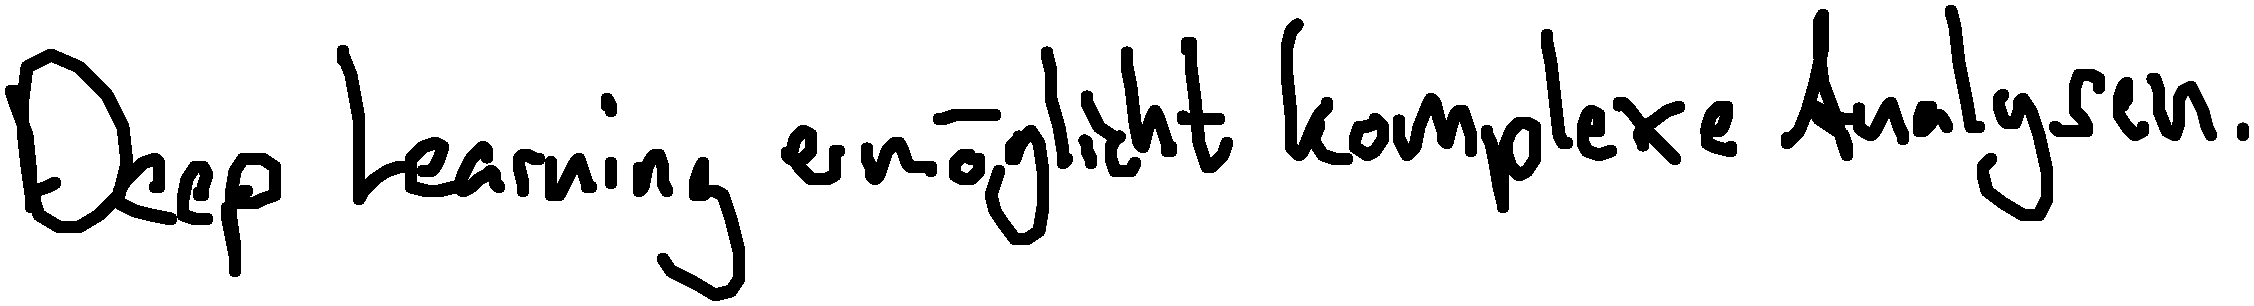 Deep Learning ermöglicht komplexe Analysen.